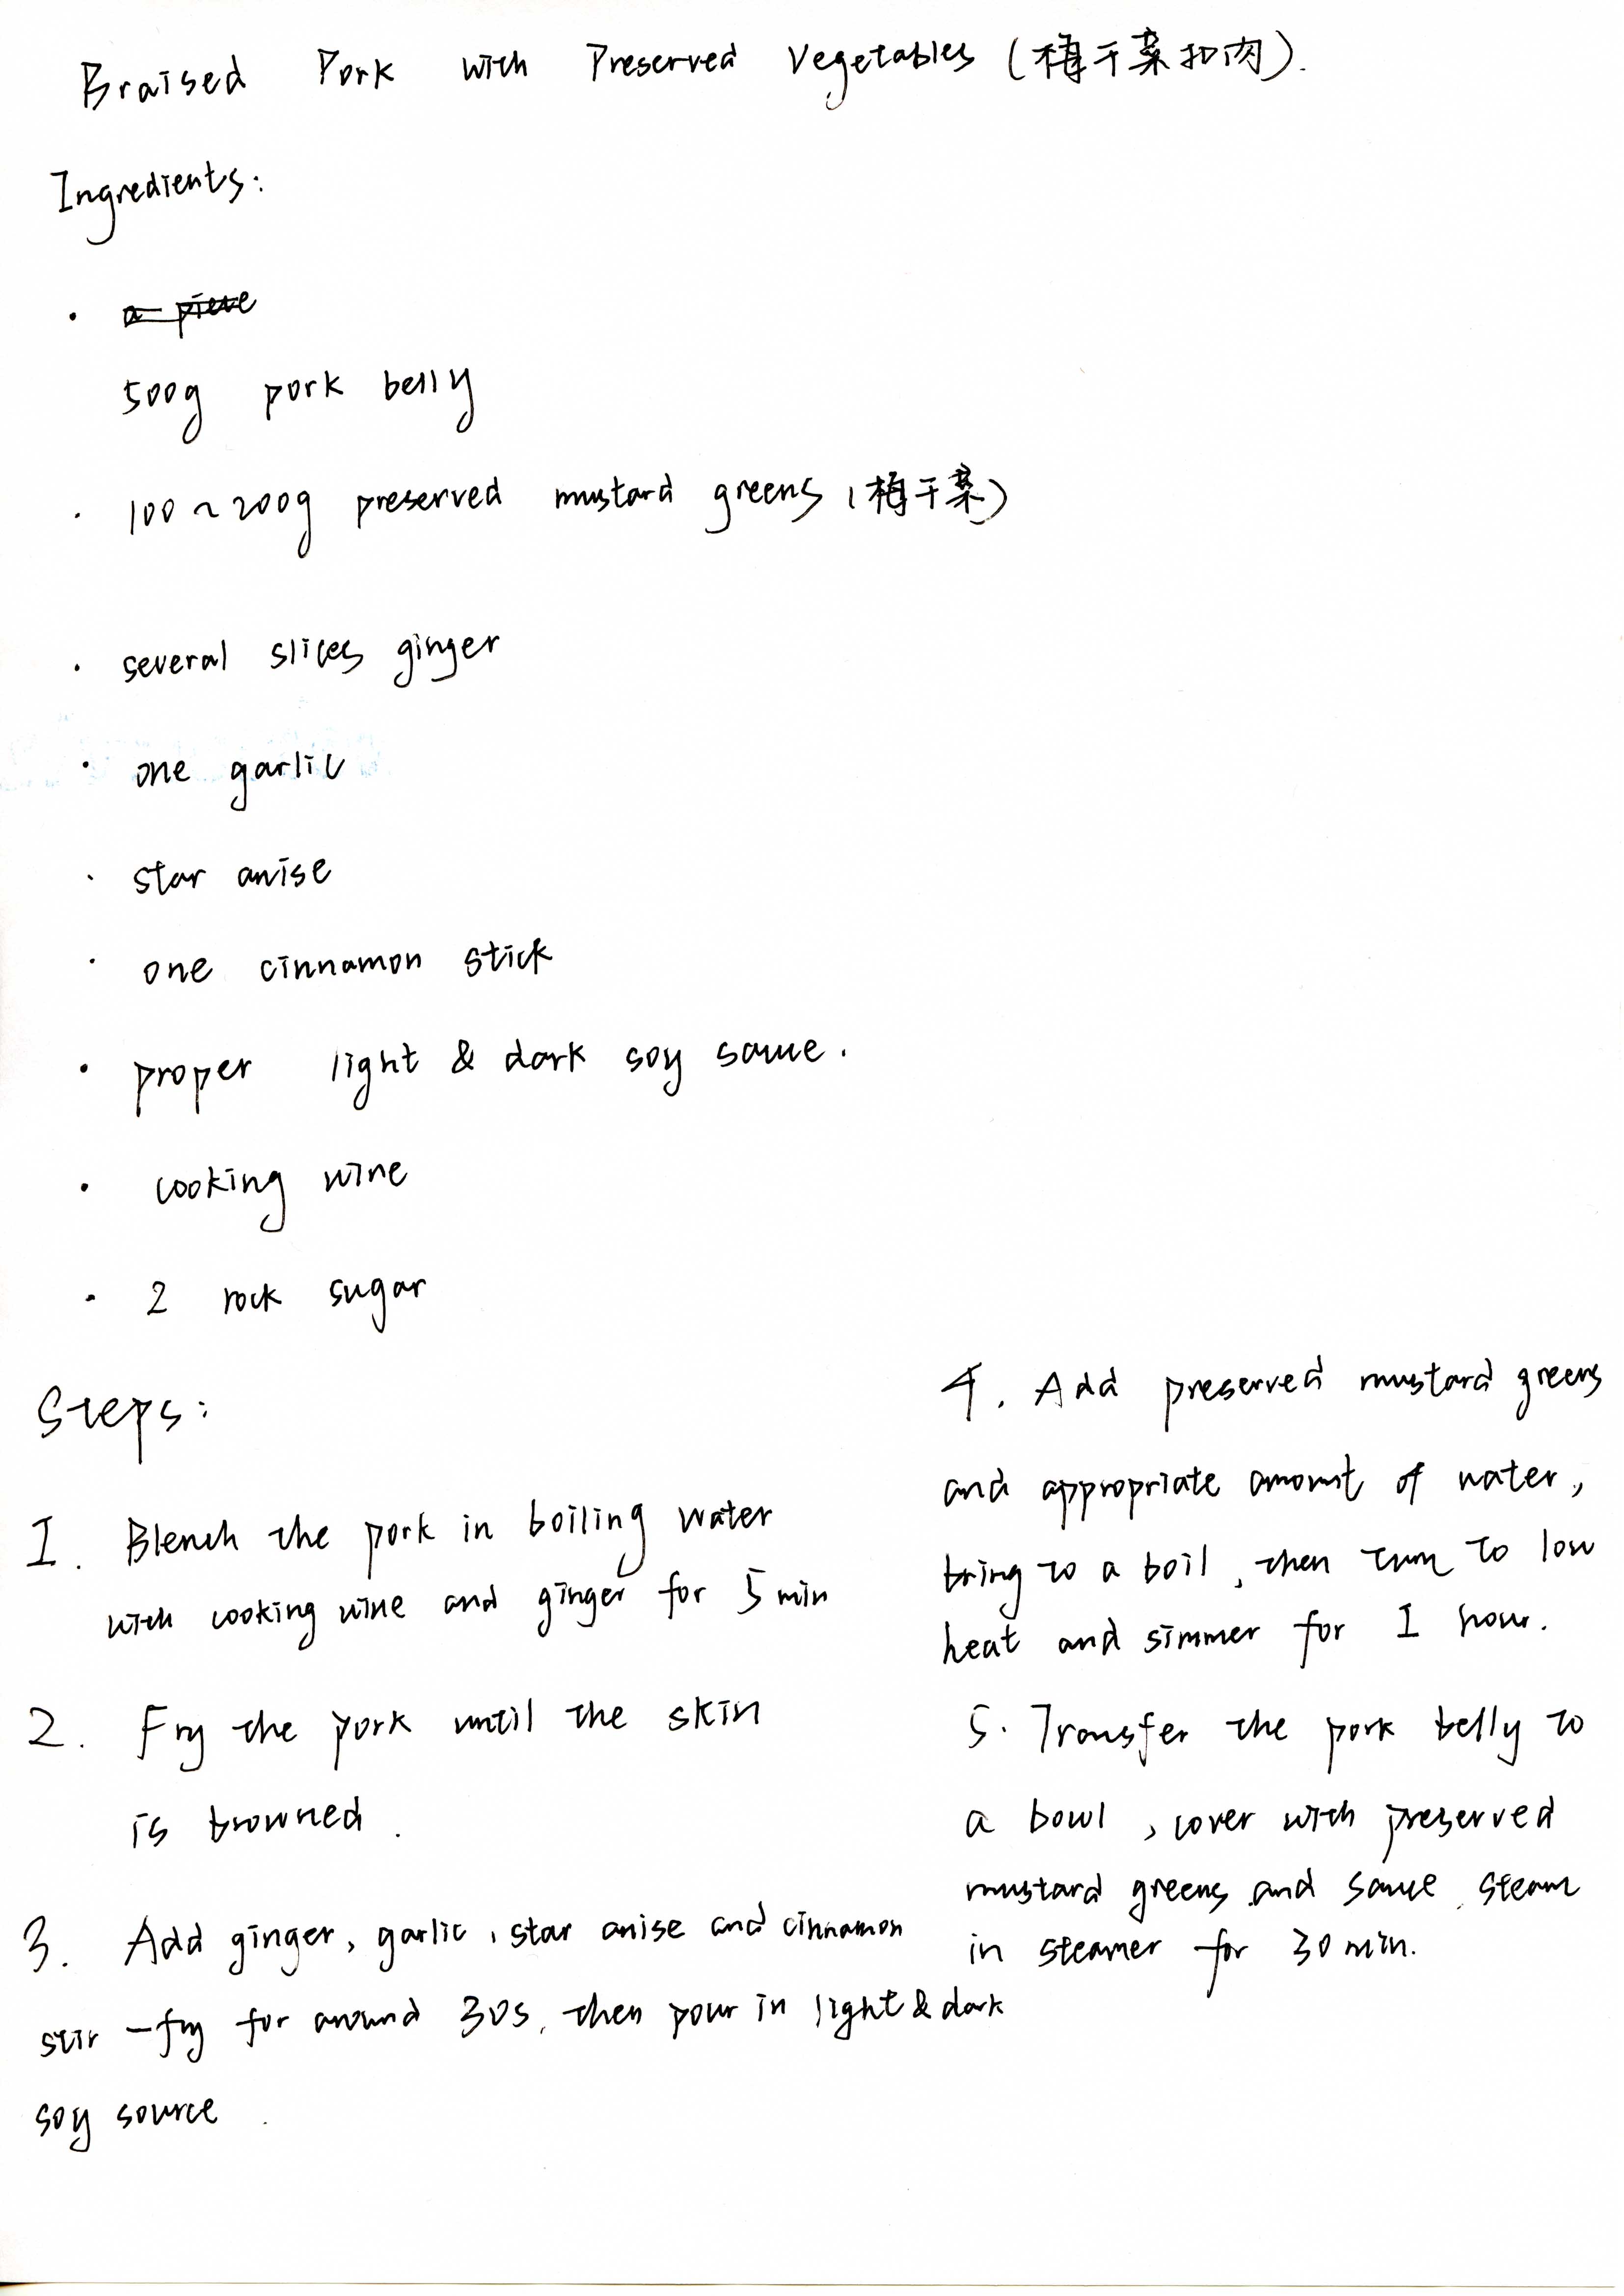 Braised Pork with Preserved Vegetables (梅干菜扣肉).
Ingredients:
· a piece
500g pork belly
· 100~200g preserved mustard greens (梅干菜)
· several slices ginger
· one garlic
· star anise
· one cinnamon stick
· proper light & dark soy sauce.
· cooking wine
· 2 rock sugar
Steps:
1. Blench the pork in boiling water
with cooking wine and ginger for 5 min
2. Fry the pork until the skin
is browned.
3. Add ginger, garlic, star anise and cinnamon
stir-fry for around 30s, then pour in light & dark
soy source.
4. Add preserved mustard greens
and appropriate amount of water,
bring to a boil, then turn to low
heat and simmer for 1 hour.
5. Transfer the pork belly to
a bowl, cover with preserved
mustard greens and sauce. steam
in steamer for 30 min.